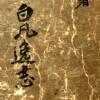 白凡逸志